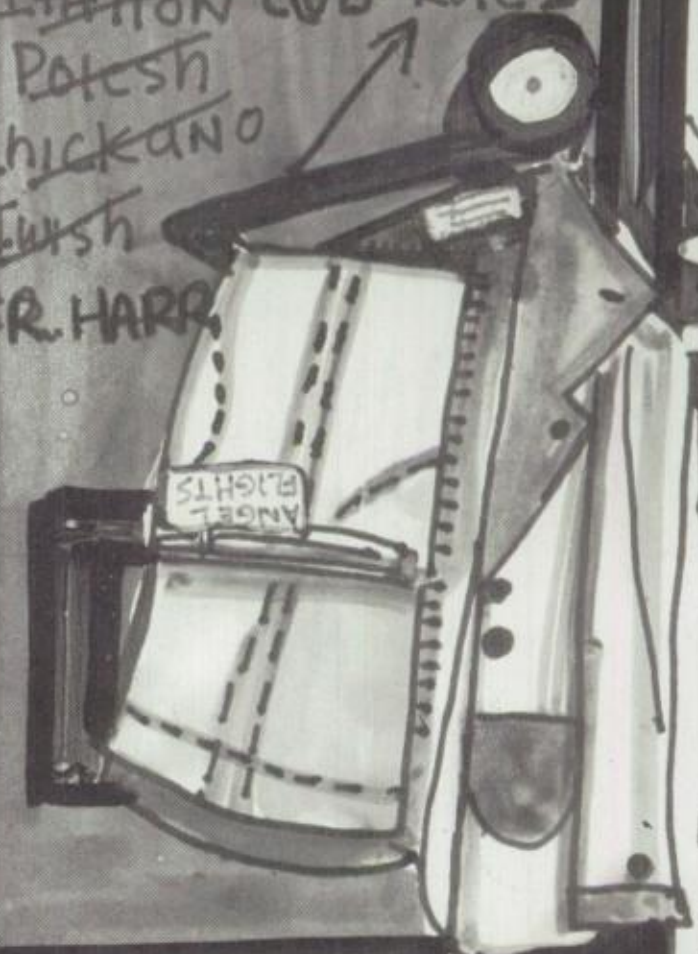 Polesh
hickANO
Ewish
R. HARR
ANGEL
FLIGHTS